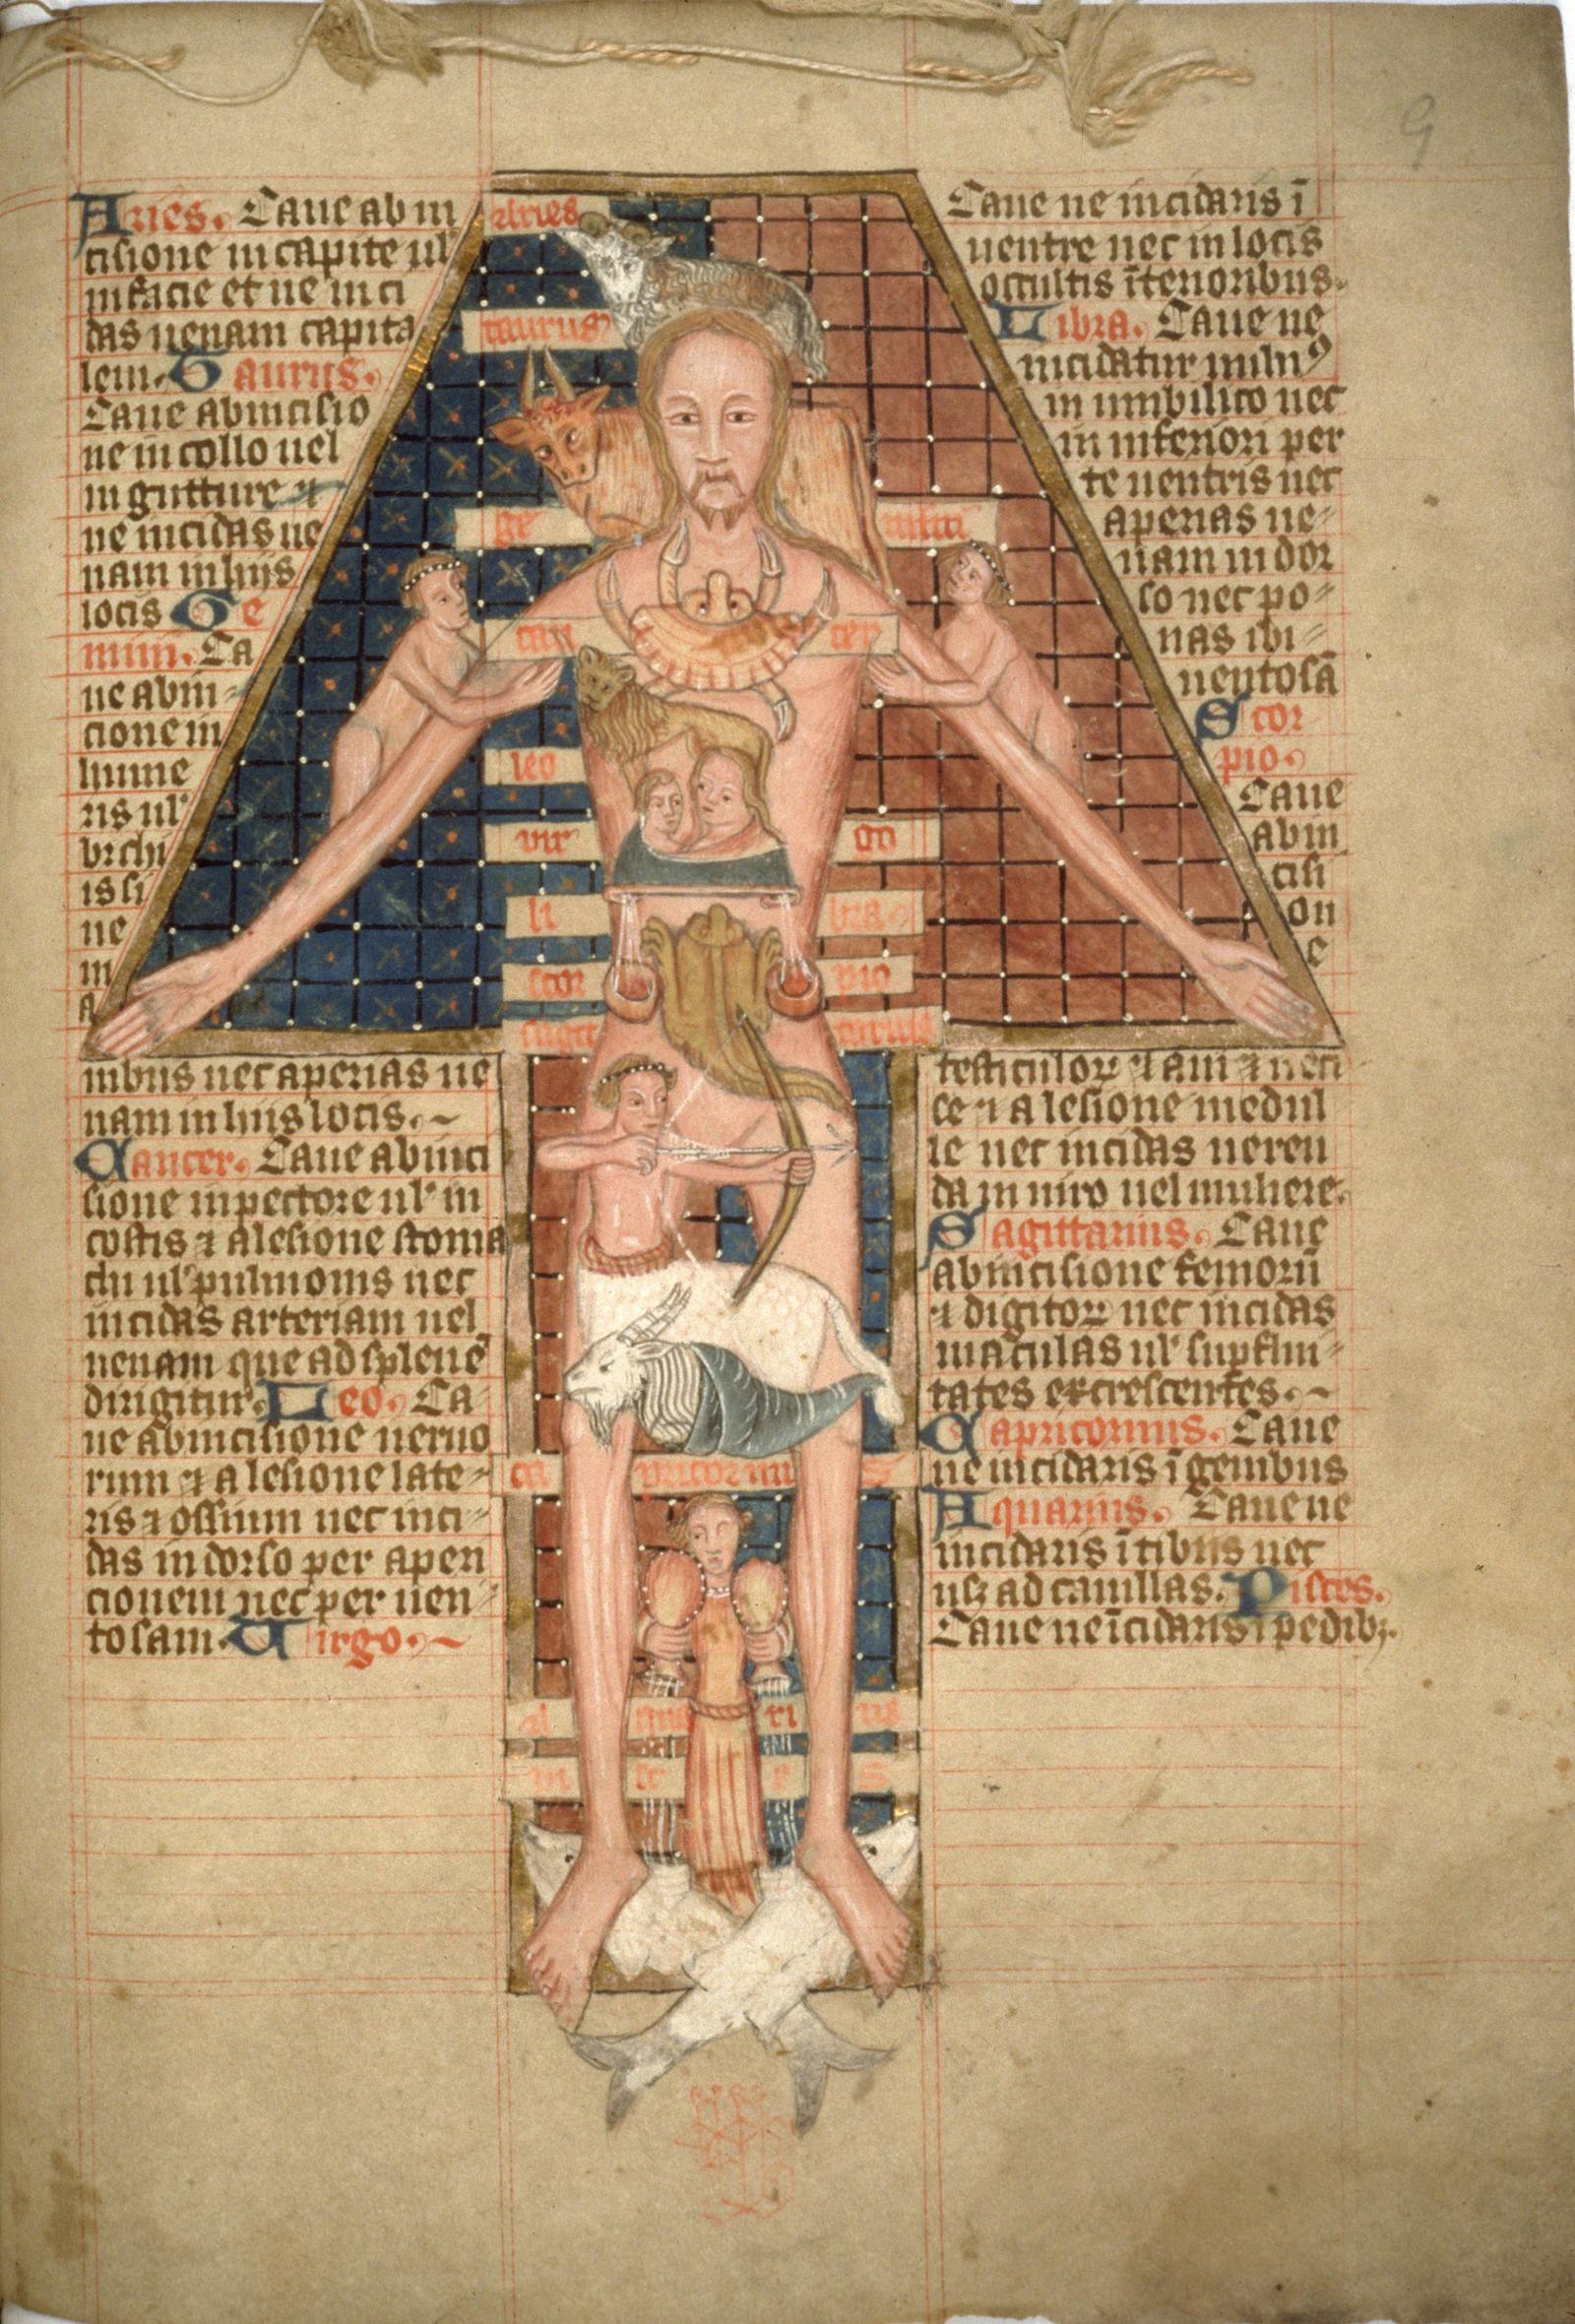 Aries. Caue ab in
cisione in capite ul'
in facie et ne inci
das uenam capita
lem. Taurus.
Caue ab incisio
ne in collo uel
in gutture ⁊
ne incidas ue
nam in hijs
locis Ge
mini. Ca
ue ab in-
cione in
hume
ris ul'
brchi
is si
ne
in
a
nibus nec aperias ue
nam in hijs locis.~
Cancer. Caue ab inci
sione in pectore ul' in
costis ⁊ a lesione stoma
chi ul' pulmonis nec
incidas arteriam uel
uenam que ad splenē
dirigitur. Leo. Ca-
ue ab incisione neruo
rum ⁊ a lesione late-
ris ⁊ ossium nec inci-
das in dorso per aperi
cionem nec per uen-
tosam. Virgo.~
Caue ne incidaris ī
uentre nec in locis
occultis īterioribus.
Libra. Caue ne
incidatur in
in umbilico nec
in inferiori per
te uentris nec
aperias ue-
nam in dor
so nec po-
nas ibi-
uentosā
Scor
pio.
Caue
ab in
cisi
on
e
testiculoꝝ ⁊
ce ⁊ a lesione medul
le nec incidas ueren
da in uiro uel muliere.
Sagittarius. Caue
ab incisione femorū
⁊ digitoꝝ nec incidas
maculas ul' supflui-
tates excrescentes.~
Capricornus. Caue
ne incidaris ī genibus
Aquarius. Caue ne
incidaris ī tibiis nec
usꝫ ad cauillas. Pisces.
Caue ne īcidaris ī pedibꝫ.
aries
taurus
ge mini
can cer
leo
vir go
li bra
scor pio
sagit tarius
ca pricornu s
a qua ri us
pi sc e s
9